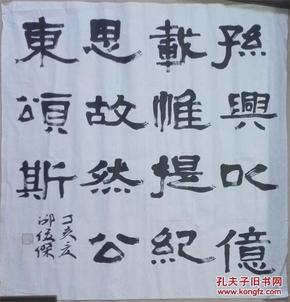 孫興以億
載惟提紀
思故然公
東頌斯
丁亥夏
邱俊傑
孔夫子旧书网